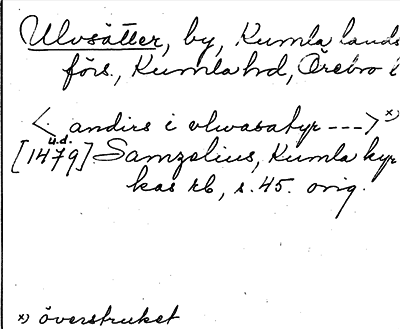 Ulvsätter, by, Kumla lands
förs., Kumla hd, Örebro l
< andirs i vlwasatyr ---> x)
u.d.
[1479] Samzelius, Kumla kyr
kas rb, s. 45. orig.
x) överstruket